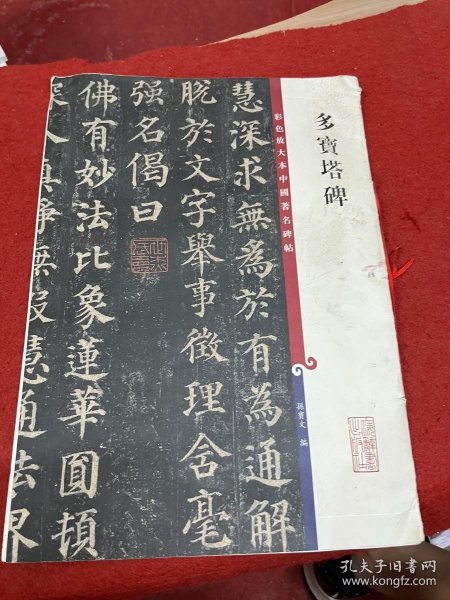 多寶塔碑
彩色放大本中國著名碑帖
孫寶文 編
慧深求無為於有為通解
脫於文字舉事徵理含毫
强名偈曰
佛有妙法比象蓮華圓頓
深入真淨無瑕慧通法界
孔夫子旧书网
www.kongfz.com